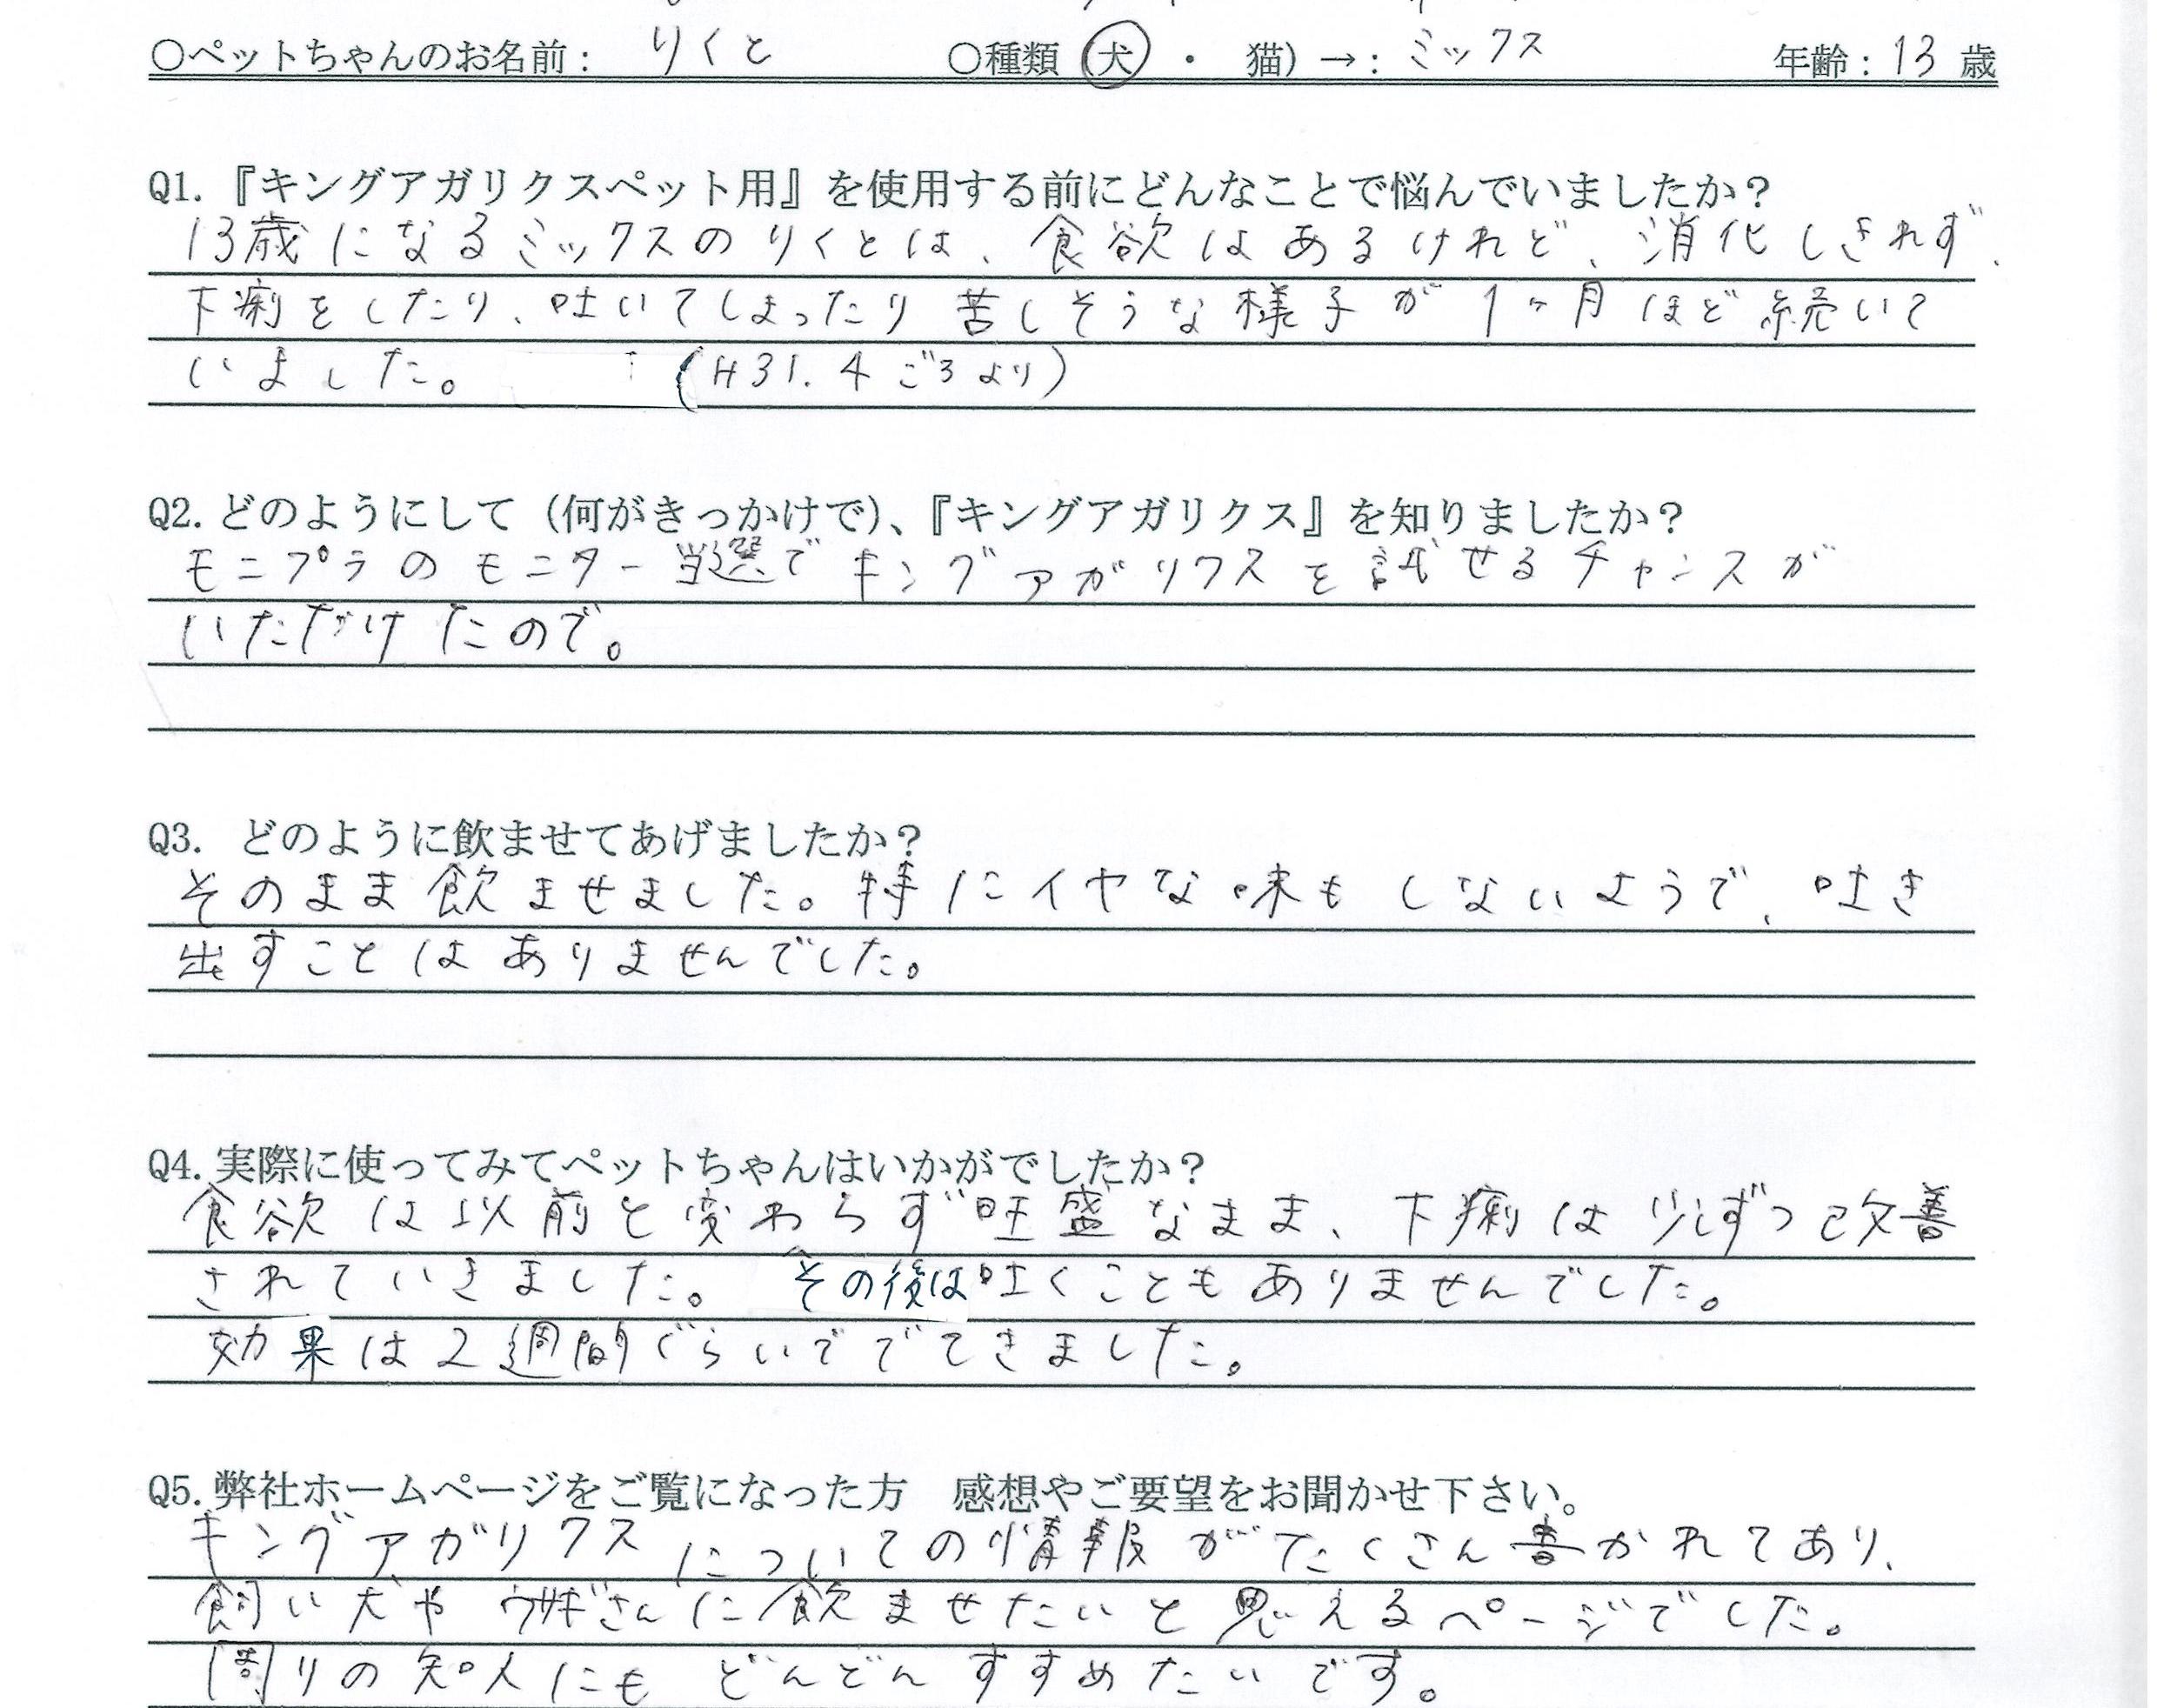 ○ペットちゃんのお名前： りくと ○種類（犬・ 猫）→：ミックス 年齢：13 歳
Q1.『キングアガリクスペット用』を使用する前にどんなことで悩んでいましたか？
13歳になるミックスのりくとは、食欲はあるけれど、消化しきれず、
下痢をしたり、吐いてしまったり苦しそうな様子が1ヶ月ほど続いて
いました。 (H31.4ごろより)
Q2.どのようにして（何がきっかけで）、『キングアガリクス』を知りましたか？
モニプラのモニター当選でキングアガリクスを試せるチャンスが
いただけたので。
Q3. どのように飲ませてあげましたか？
そのまま飲ませました。特にイヤな味もしないようで、吐き
出すことはありませんでした。
Q4.実際に使ってみてペットちゃんはいかがでしたか？
食欲は以前と変わらず旺盛なまま、下痢は少しずつ改善
されていきました。 その後は吐くこともありませんでした。
効果は2週間ぐらいででてきました。
Q5.弊社ホームページをご覧になった方 感想やご要望をお聞かせ下さい。
キングアガリクスについての情報がたくさん書かれてあり、
飼い犬やウサギさんに飲ませたいと思えるページでした。
周りの知人にもどんどんすすめたいです。